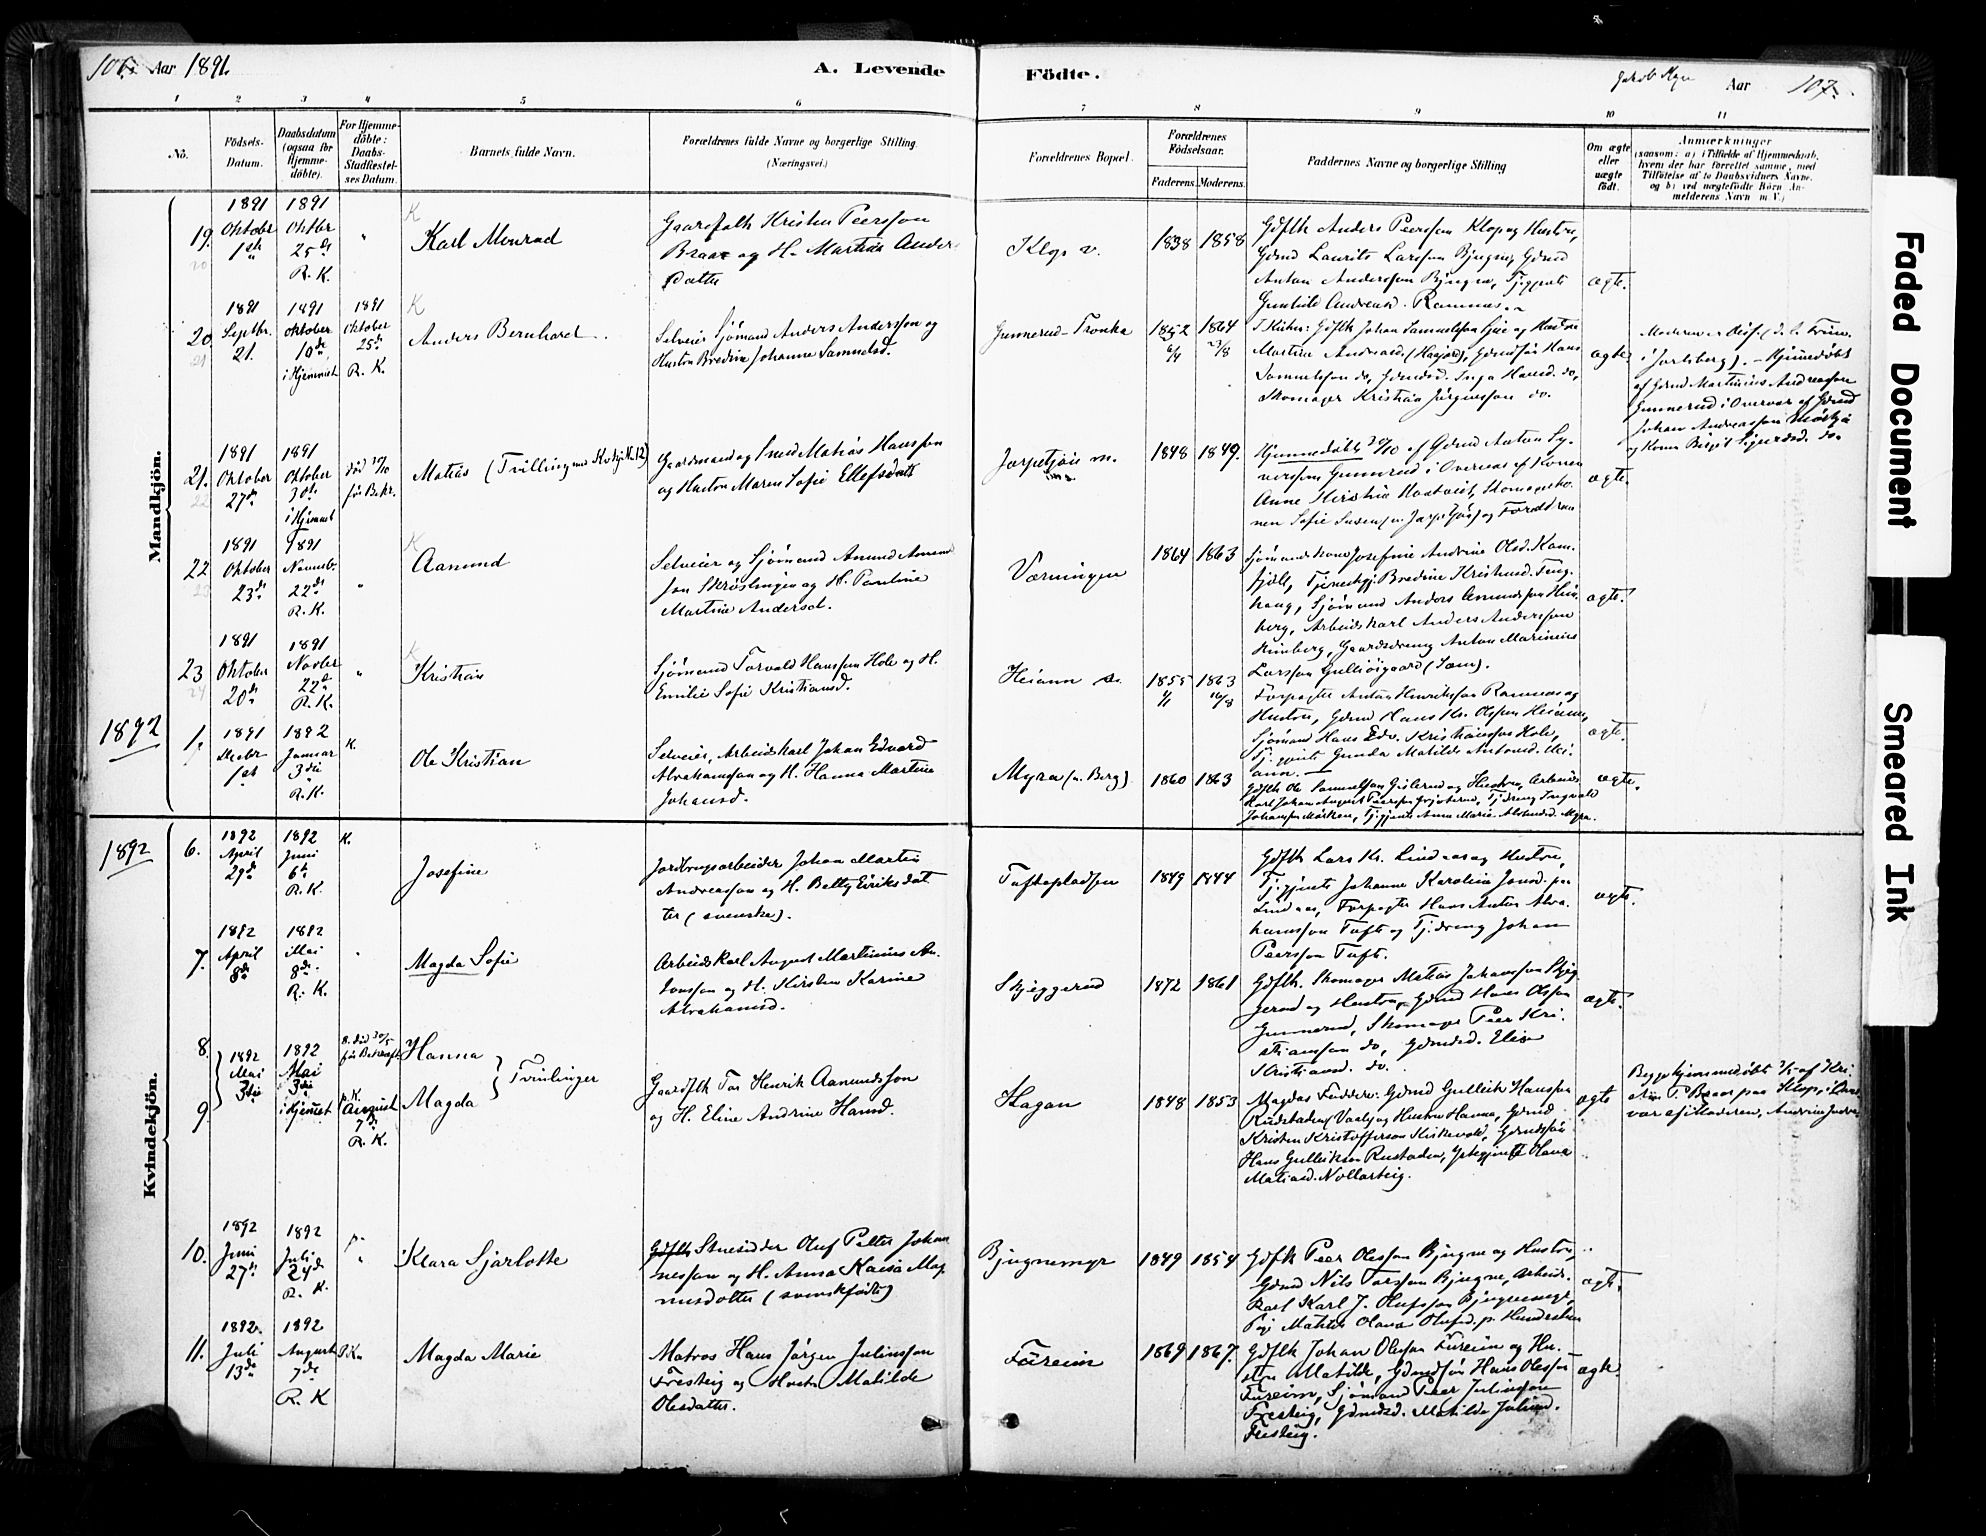 106. Aar 1891.
A. Levende
Födte.
Aar
107.
1
2
3
4
5
6
7
8
9
10
11
No.
Födsels-
Datum.
Daabsdatum
(ogsaa for
Hjemme-
döbte).
For Hjemme-
döbte:
Daabs-
Stadfæstel-
ses Datum.
Barnets fulde Navn.
Forældrenes fulde Navne og borgerlige Stilling
(Næringsvei.)
Forældrenes Bopæl.
Forældrenes
Födselsaar.
Faderens.
Moderens.
Faddernes Navne og borgerlige Stilling
Om ægte
eller
uægte
födt.
Anmærkninger
(saasom: a) i Tilfælde af Hjemmedaab,
hvem der har forrettet samme, med
Tilföielse af to Daabsvidners Navne,
og b) ved uægtefödte Börn An-
melderens Navn m. V.)
Mandkjön.
19.
1891
Oktober
1ste
1891
Oktbr
25de
R. K.
"
K
Karl Monrad
Gaardfolk Kristen Peersson
Braar og H. Martine Anders
Datter
Klop v.
1838
1858
Gdflk Anders Peersson Klop og Hustru,
Gdmd Laurits Larsson Bjugne, Gdmd
Anton Andersson Bjugne, Tj.pjente
Gunhild Andreasd. Ramnes.
ægte.
20.
1891
Septbr.
21.
1891
Oktober
10de
i Hjemmet
1891
Oktober
25de
R. K.
K
Anders Bernhard.
Selveier Sjömand Anders Andersson og
Hustru Bredine Johanne Samuelsd.
Gunnerud-Tronka
1852
6/4
1864
23/8
Gdflk Johan Samuelsson og Hustru
Martine Andreasd. Gdmdsön Hans
Sammelsson do, Gdmdsd. Inga Hansd. do,
Skomager Kristian Jörgensson do.
ægte.
i Jarlsberg). - Hjemmedöbt
af Gdmd Martinius Andreassen
Gunnerud i Overvær af Gdmd
Johan Andreassen
og Kone Birgit Sjurdsd. do.
21.
1891
Oktober
27de
1891
Oktober
30te
i Hjemmet
död 30/10
för Bekr.
Matias (Tvilling med Kvkj. N. 12)
Gaardmand og Smed Matias Hansson
og Hustru Maren Sofie Ellefsdatt
1848
1849.
Hjemmedöbt 30/10 af Gdmd Anton Sy-
versson Gunnerud i Overvær af Konen
Anne Kirstine Skomagerko-
nen Sofie og Forældrene
ægte.
22
1891
Oktober
23de
1891
Novmbr.
22de
R. K.
"
K
Aamund
Selveier og Sjömand Amund Amund
son Skröslingen og H. Pauline
Martine Andersd.
Værningen
1864
1863
Sjömandskone Josefine Andrine Olsd. Kam-
fjell, Tjenestpj. Bredine Kristensd. Teng-
haug, Sjömand Anders Amundsson Him-
berg, Arbeidskarl Anders Andersson
Himberg, Gaardsdreng Anton Marinius
Larsson Gulliösgaard (Sem).
ægte.
23
1891
Oktober
20de
1891
Novbr
22de
R. K.
"
K
Kristian
Sjömand Torvald Hansson Hole og H.
Emilie Sofie Kristiansd.
Heiann
1855
1/1
1863
16/8
Forpagter Anton Henriksson Ramnes og
Hustru, Gdmd Hans Kr. Olsson Heiann,
Sjömand Hans Edv. Kristiansson Hole,
Tj.pjente Gunda Matilde Antonsd. Hei-
ann.
ægte.
1892
1.
1891
Decbr
1ste
1892
Januar
3die
R. K.
K.
Ole Kristian
Selveier, Arbeidskarl Johan Edvard
Abrahamsson og H. Hanna Martine
Johansd.
Myra (u. Berg)
1860
1863
Gdflk Ole Samuelsson Gislerud og Hustru, Arbeids-
karl Johan August Peersson Tj.dreng Ingvald
Johansson Mörken, Tj.pjente Anne Marie Myra.
ægte.
Kvindekjön.
1892
6.
1892
April
29de
1892
Juni
6te
R. K.
K.
Josefine
Jordbrugsarbeider Johan Martin
Andreasson og H. Betty Eiriksdat
ter (svenske).
Tuftepladsen
1849
1844
Gdflk Lars Kr. Lindaas og Hustru,
Tj.pjente Johanne Karoline Jonsd. paa
Lindaas, Forpagter Hans Anton Abra-
hamsson Tuft og Tj.dreng Johan
Peersson Tuft.
ægte.
7.
1892
April
8de
1892
Mai
8de.
R. K.
"
Magda Sofie
Arbeidskarl August Martinius An-
tonsson og H. Kirsten Karine
Abrahamsd.
Skjeggerud
1872
1861
Gdflk. Skomager Matias Johansson Skjeg
gerud og Hustru, Gdmd Hans Olsson
Gunnerud, Skomager Peer Kri-
stiansson do, Gdmdsd. Elise
Kristiansd. do.
ægte.
8.
9.
1892
Mai
3die
1892
Mai
3die
i Hjemmet
8. död 30/5
för Bekræft.
K.
August
7de
R. K.
Hanna
Magda
Tvinlinger
Gaardflk Tor Henrik Aamundsson
og H. Eline Andrine Hansd.
Hagan
1848
1853
Magdas Faddere: Gdmd Gullik Hansson
Rudstaden (Vaale) og Hustru Hanna, Gdmd
Kristen Kristofferson Kirkevold, Gdmdsön
Hans Gullikson Rustaden, Ypkepjente Hana
Matiasd. Nollarteig.
ægte
Begge hjemmedöbt 3/5 af Kri-
stin P. Braar paa Klop, i Over-
vær af Moderen, Andrine
10.
1892
Juni
27de
1892
Juli
24de
R. K.
"
Klara Sjarlotte
Gdflk Stuesidder Oluf Petter Johan
nesson og H. Anna Kaisa Mag
nusdotter (svenskfödte)
Bjugnemyr
1849
1854
Gdflk Peer Olesson Bjugne og Hustru,
Gdmd Nils Torsson Bjugne, Arbeids-
karl Karl J. Olufsson Bjugnemyr,
Pige Matilde Olava Olufsd. p.
ægte.
11.
1892.
Juli
13de
1892
August
7de
R. K
P.K.
Magda Marie
Matros Hans Jörgen Juliusson
Fresteig og Hustr Matilde
Olesdatter.
Fureim
1869
1867.
Gdflk Johan Olesson Fureim og Hu-
stru Matilde, Gdmdsön Hans Olesson
Fureim, Sjömand Peer Juliusson
Fresteig, Gdmdsd. Matilde Juliusd.
Fresteig.
ægte.
Faded Document
Smeared Ink